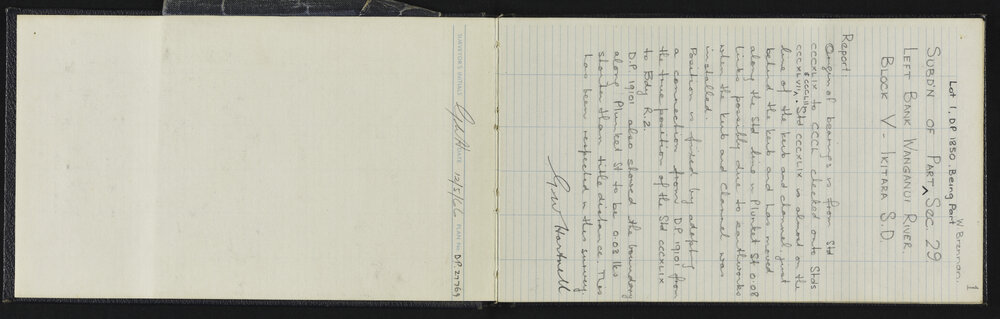 SURVEYOR'S INITIALS DATE 12/5/66 PLAN No. D.P. 27769
1
W Brennan.
Lot 1, DP 1850, Being Part
SUBD'N OF PART ^ SEC. 29
LEFT BANK WANGANUI RIVER.
BLOCK V IKITARA S.D.
Report:
Origin of bearings is from Std
CCCXLIX to CCCL checked onto Stds
CCCXLVII & CCCXLVIII. Std CCCXLIX is almost on the
line of the kerb and channel just
behind the kerb and has moved
along the Std line in Plunket St 0.08
links possibly due to earthworks
when the kerb and channel was
installed.
Position is fixed by adopting
a connection from DP 19101 from
the true position of the Std CCCXLIX
to Bdy R.2.
D.P. 19101 also showed the boundary
along Plunket St to be 0.03 lks
shorter than title distance. This
has been respected in this survey.
GW Hartnell